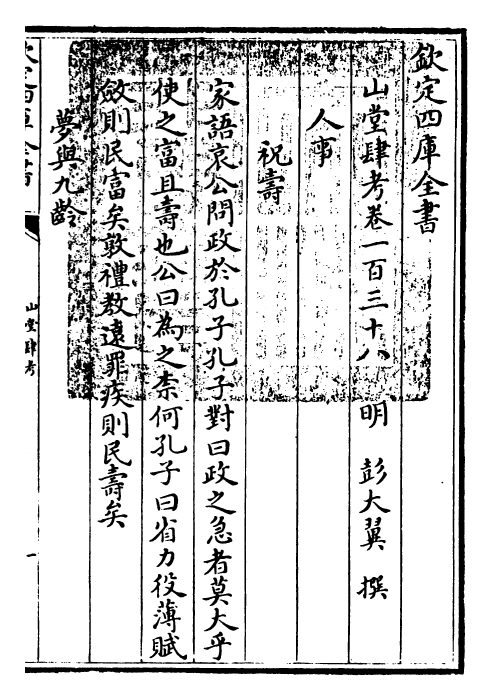 欽定四庫全書
山堂肆考卷一百三十八 明 彭大翼 撰
人事
祝壽
家語哀公問政於孔子孔子對曰政之急者莫大乎
使之富且壽也公曰為之柰何孔子曰省力役薄賦
斂則民富矣敦禮教遠罪疾則民壽矣
夢與九齡
山堂肆考
一